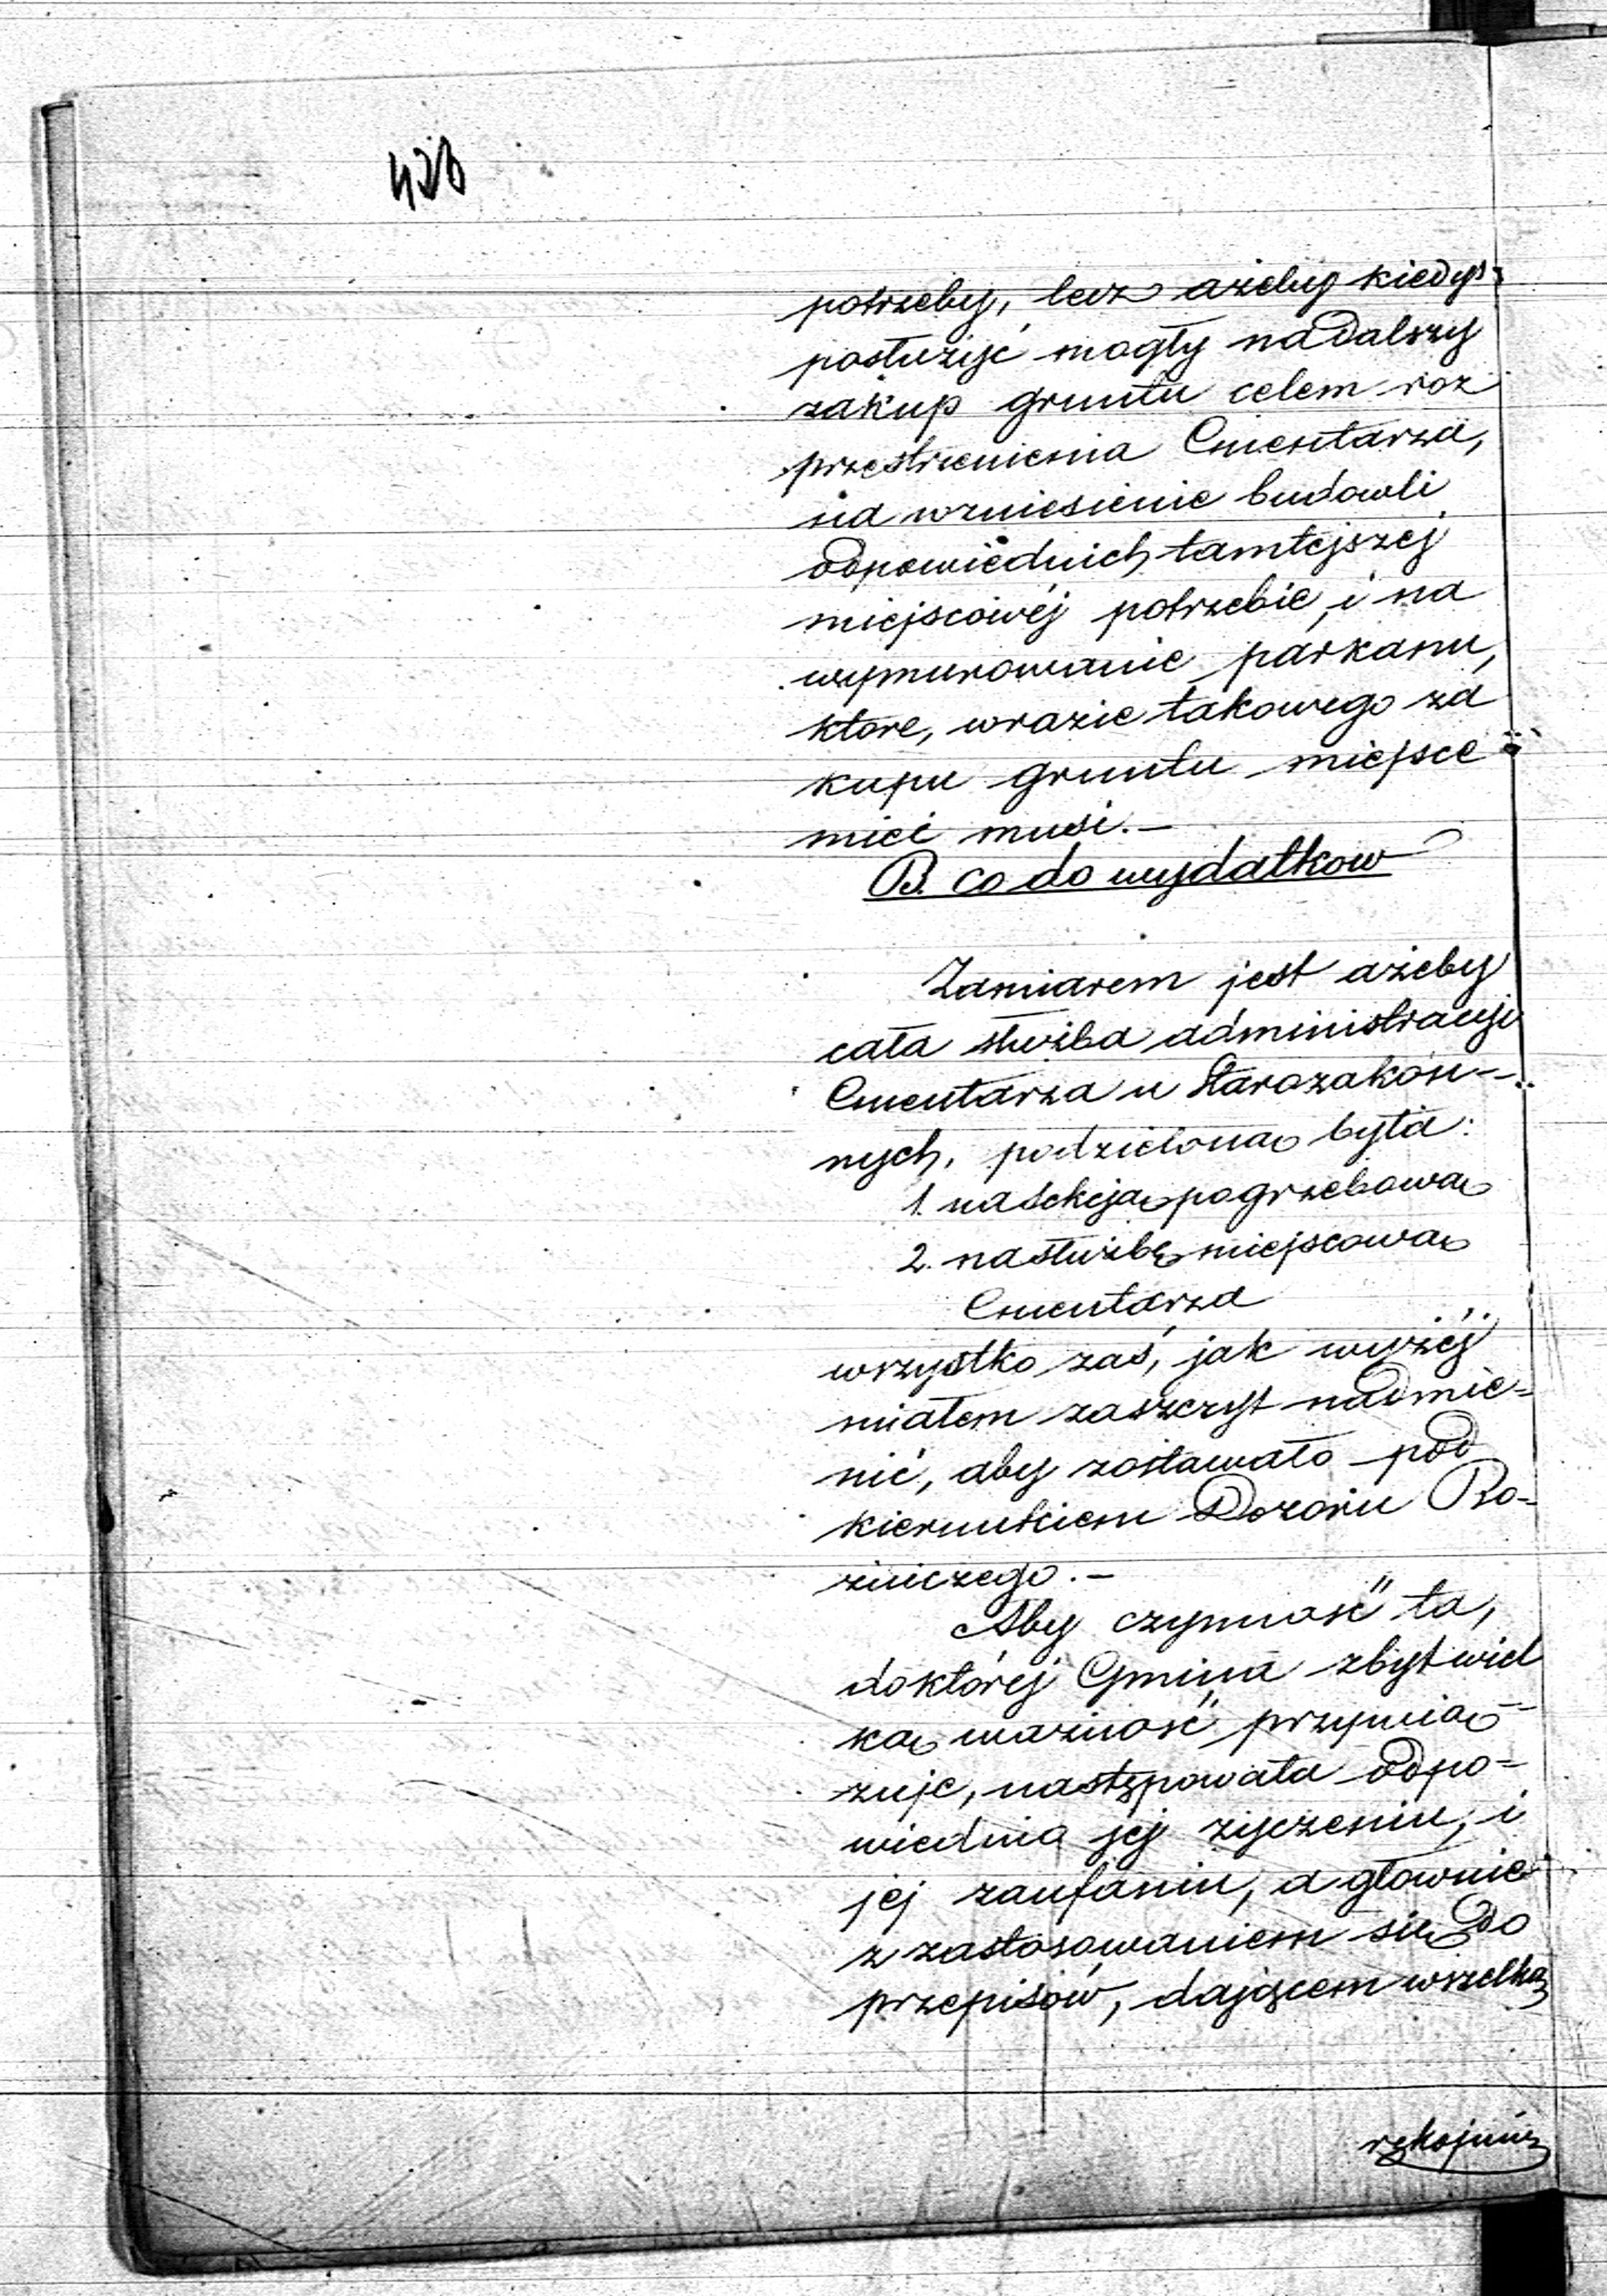 potrzeby, lecz ażeby kiedyś
posłużyć mogły nadalszy
zakup gruntu celem roz
przestrzenienia Cmentarza,
na wzniesienie budowli
odpowiednich tamtejszej
miejscowéj potrzebie, i na
wymurowanie parkanu,
ktore, wrazie takowego za
kupu gruntu miejsce
mieć musi.—
B. co do wydatkow
Zamiarem jest ażeby
cała służba administracyi
Cmentarza u Starozakon-
nych, podzieloną była:
1. na sekcją pogrzebową
2. na służbę miejscową
Cmentarza
wszystko zaś, jak wyżéj
miałem zaszczyt nadmie-
nić, aby zostawało pod
kierunkiem Dozoru Bo-
żniczego.—
Aby czynność ta,
do któréj Gmina zbyt wiel
ką ważność przywią-
zuje, następowała odpo-
wiednio jej życzeniu, i
jej zaufaniu, a głownie
z zastosowaniem się do
przepisów, dającem wszelką
rękojmię